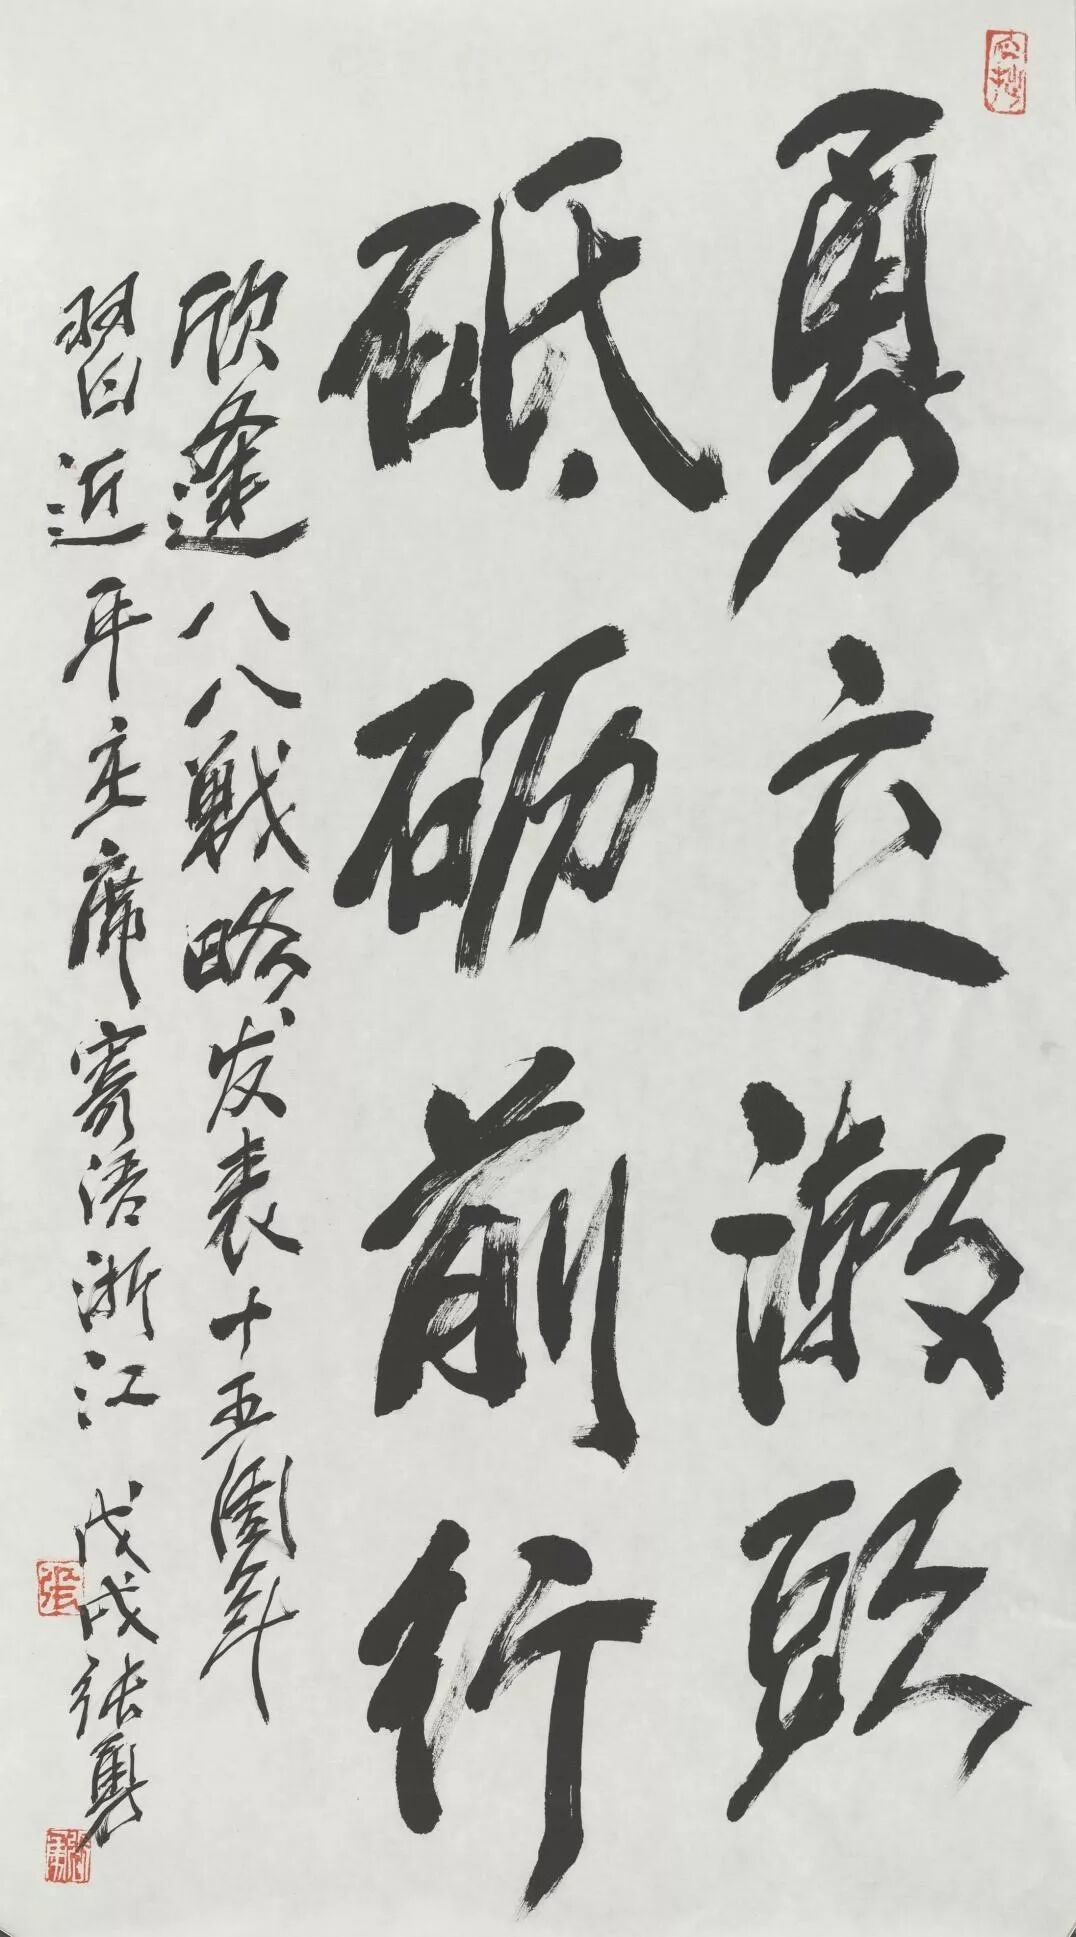 勇立潮頭
砥砺前行
欣逢八八戰略发表十五周年
習近平主席寄语浙江 戊戌张勇